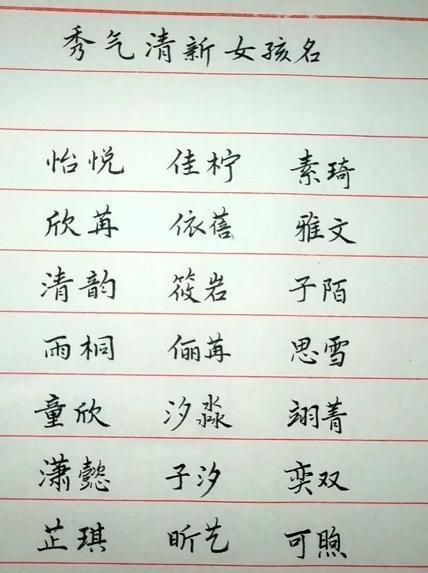 秀气清新女孩名
怡悦 佳柠 素琦
欣苒 依蓓 雅文
清韵 筱岩 子陌
雨桐 俪苒 思雪
童欣 汐淼 翊菁
潇懿 子汐 奕双
芷琪 昕艺 可煦